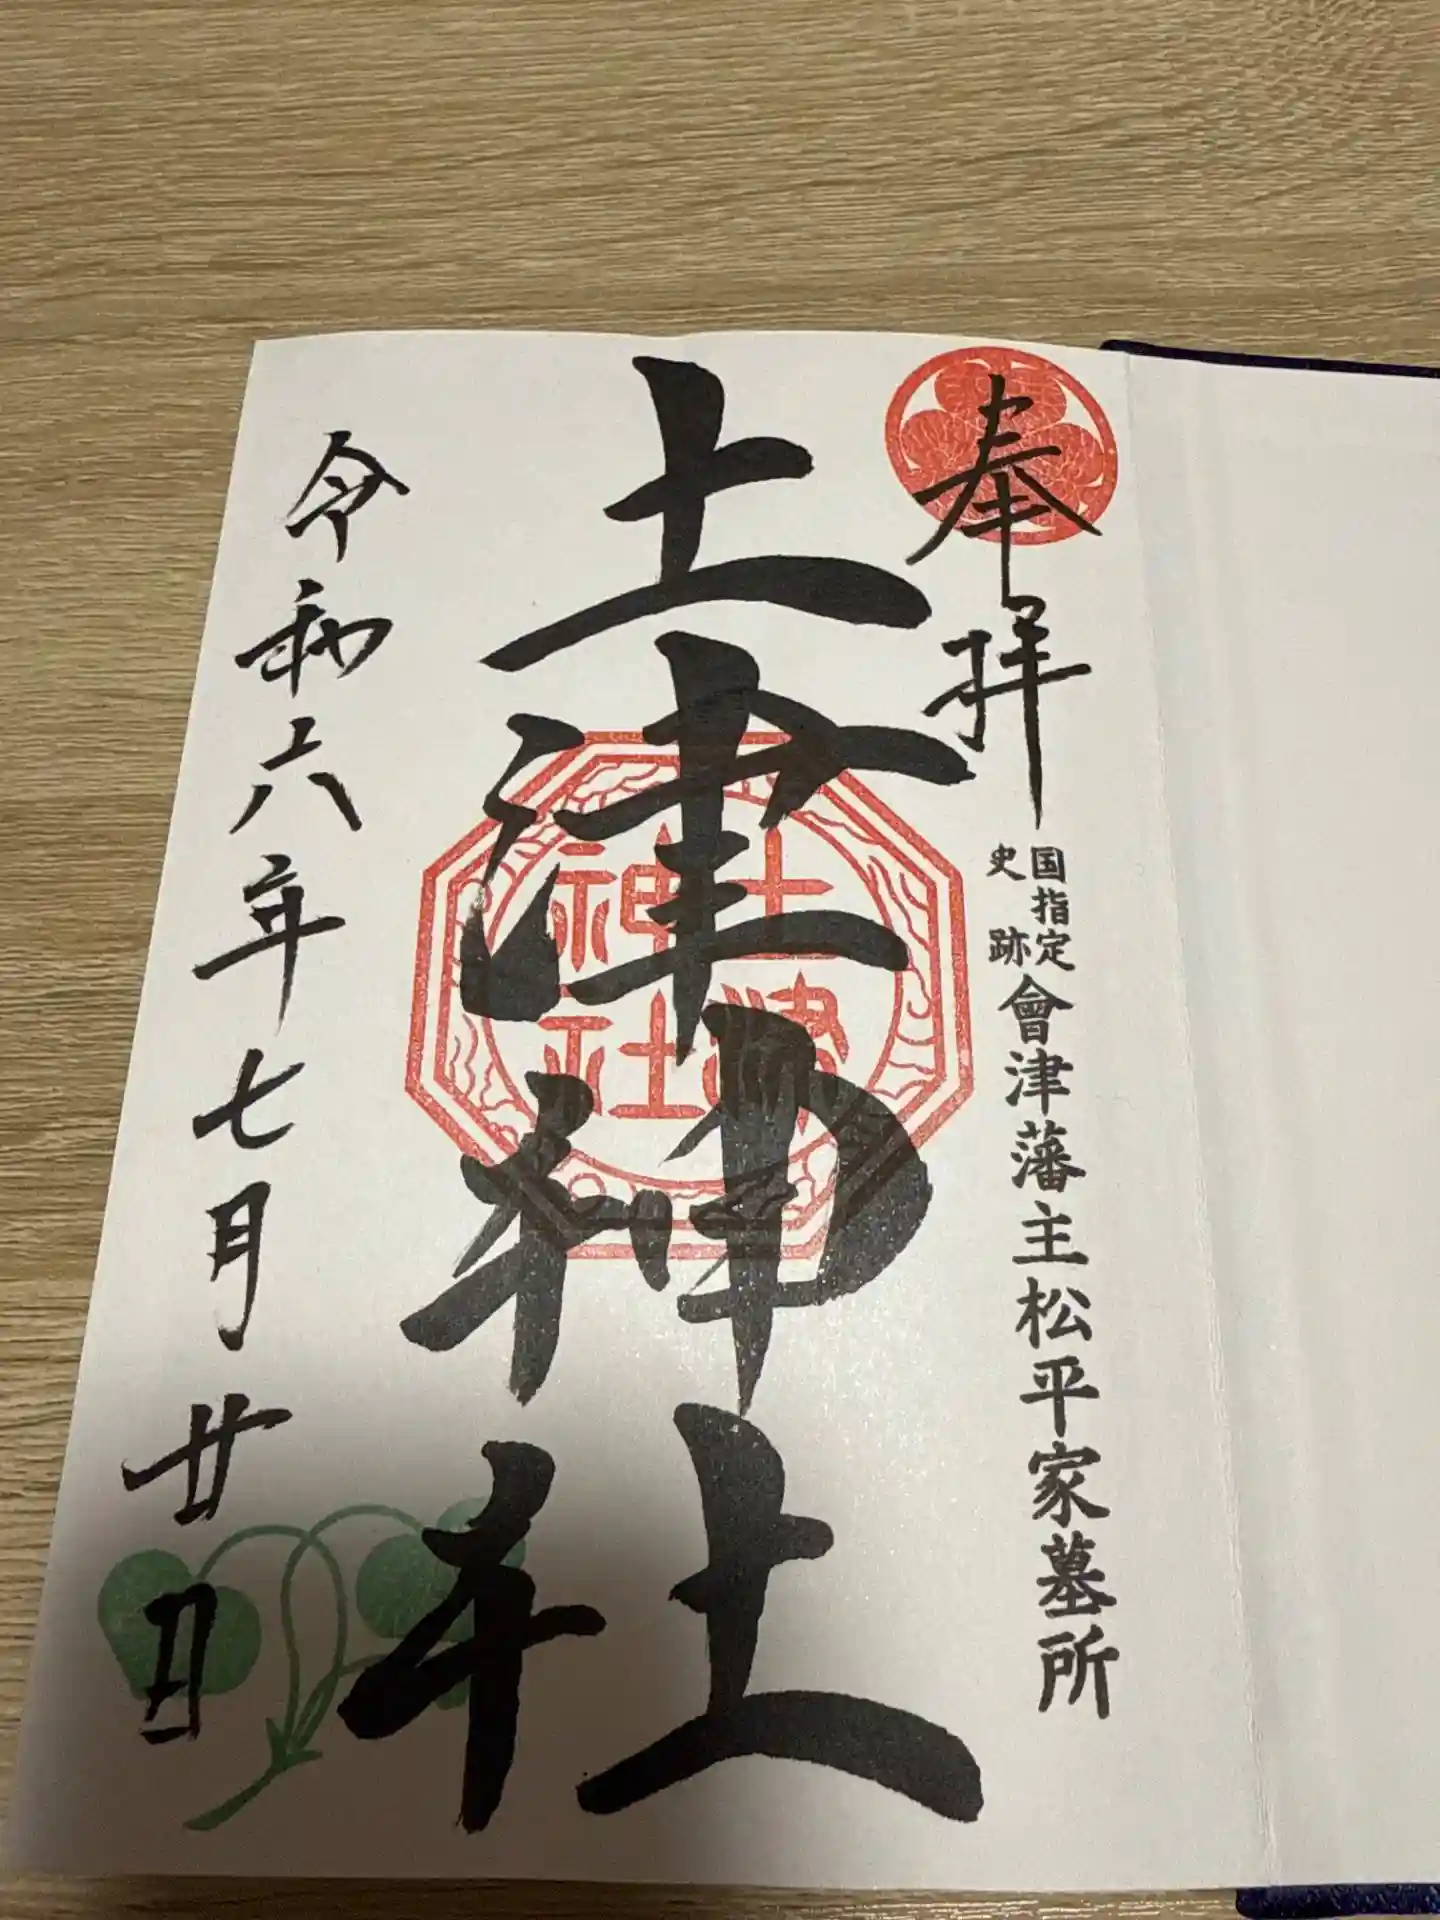 奉拝
国指定
史跡
會津藩主松平家墓所
土津神社
土津
神社
令和六年七月廿日